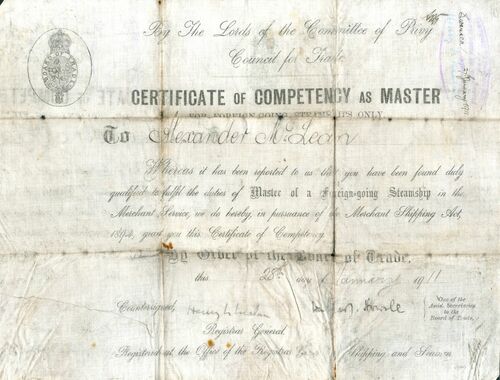 By The Lords of the Committee of Privy
Council for Trade.
CERTIFICATE OF COMPETENCY AS MASTER
FOR FOREIGN-GOING STEAMSHIPS ONLY
To Alexander McLean
Whereas it has been reported to us that you have been found duly
qualified to fulfil the duties of Master of a Foreign-going Steamship in the
Merchant Service, we do hereby, in pursuance of the Merchant Shipping Act,
1894, grant you this Certificate of Competency.
By Order of the Board of Trade,
this 28th day of January 1911
Countersigned,
Registrar General.
One of the
Assist. Secretaries
to the
Board of Trade.
Registered at the Office of the Registrar General of Shipping and Seamen